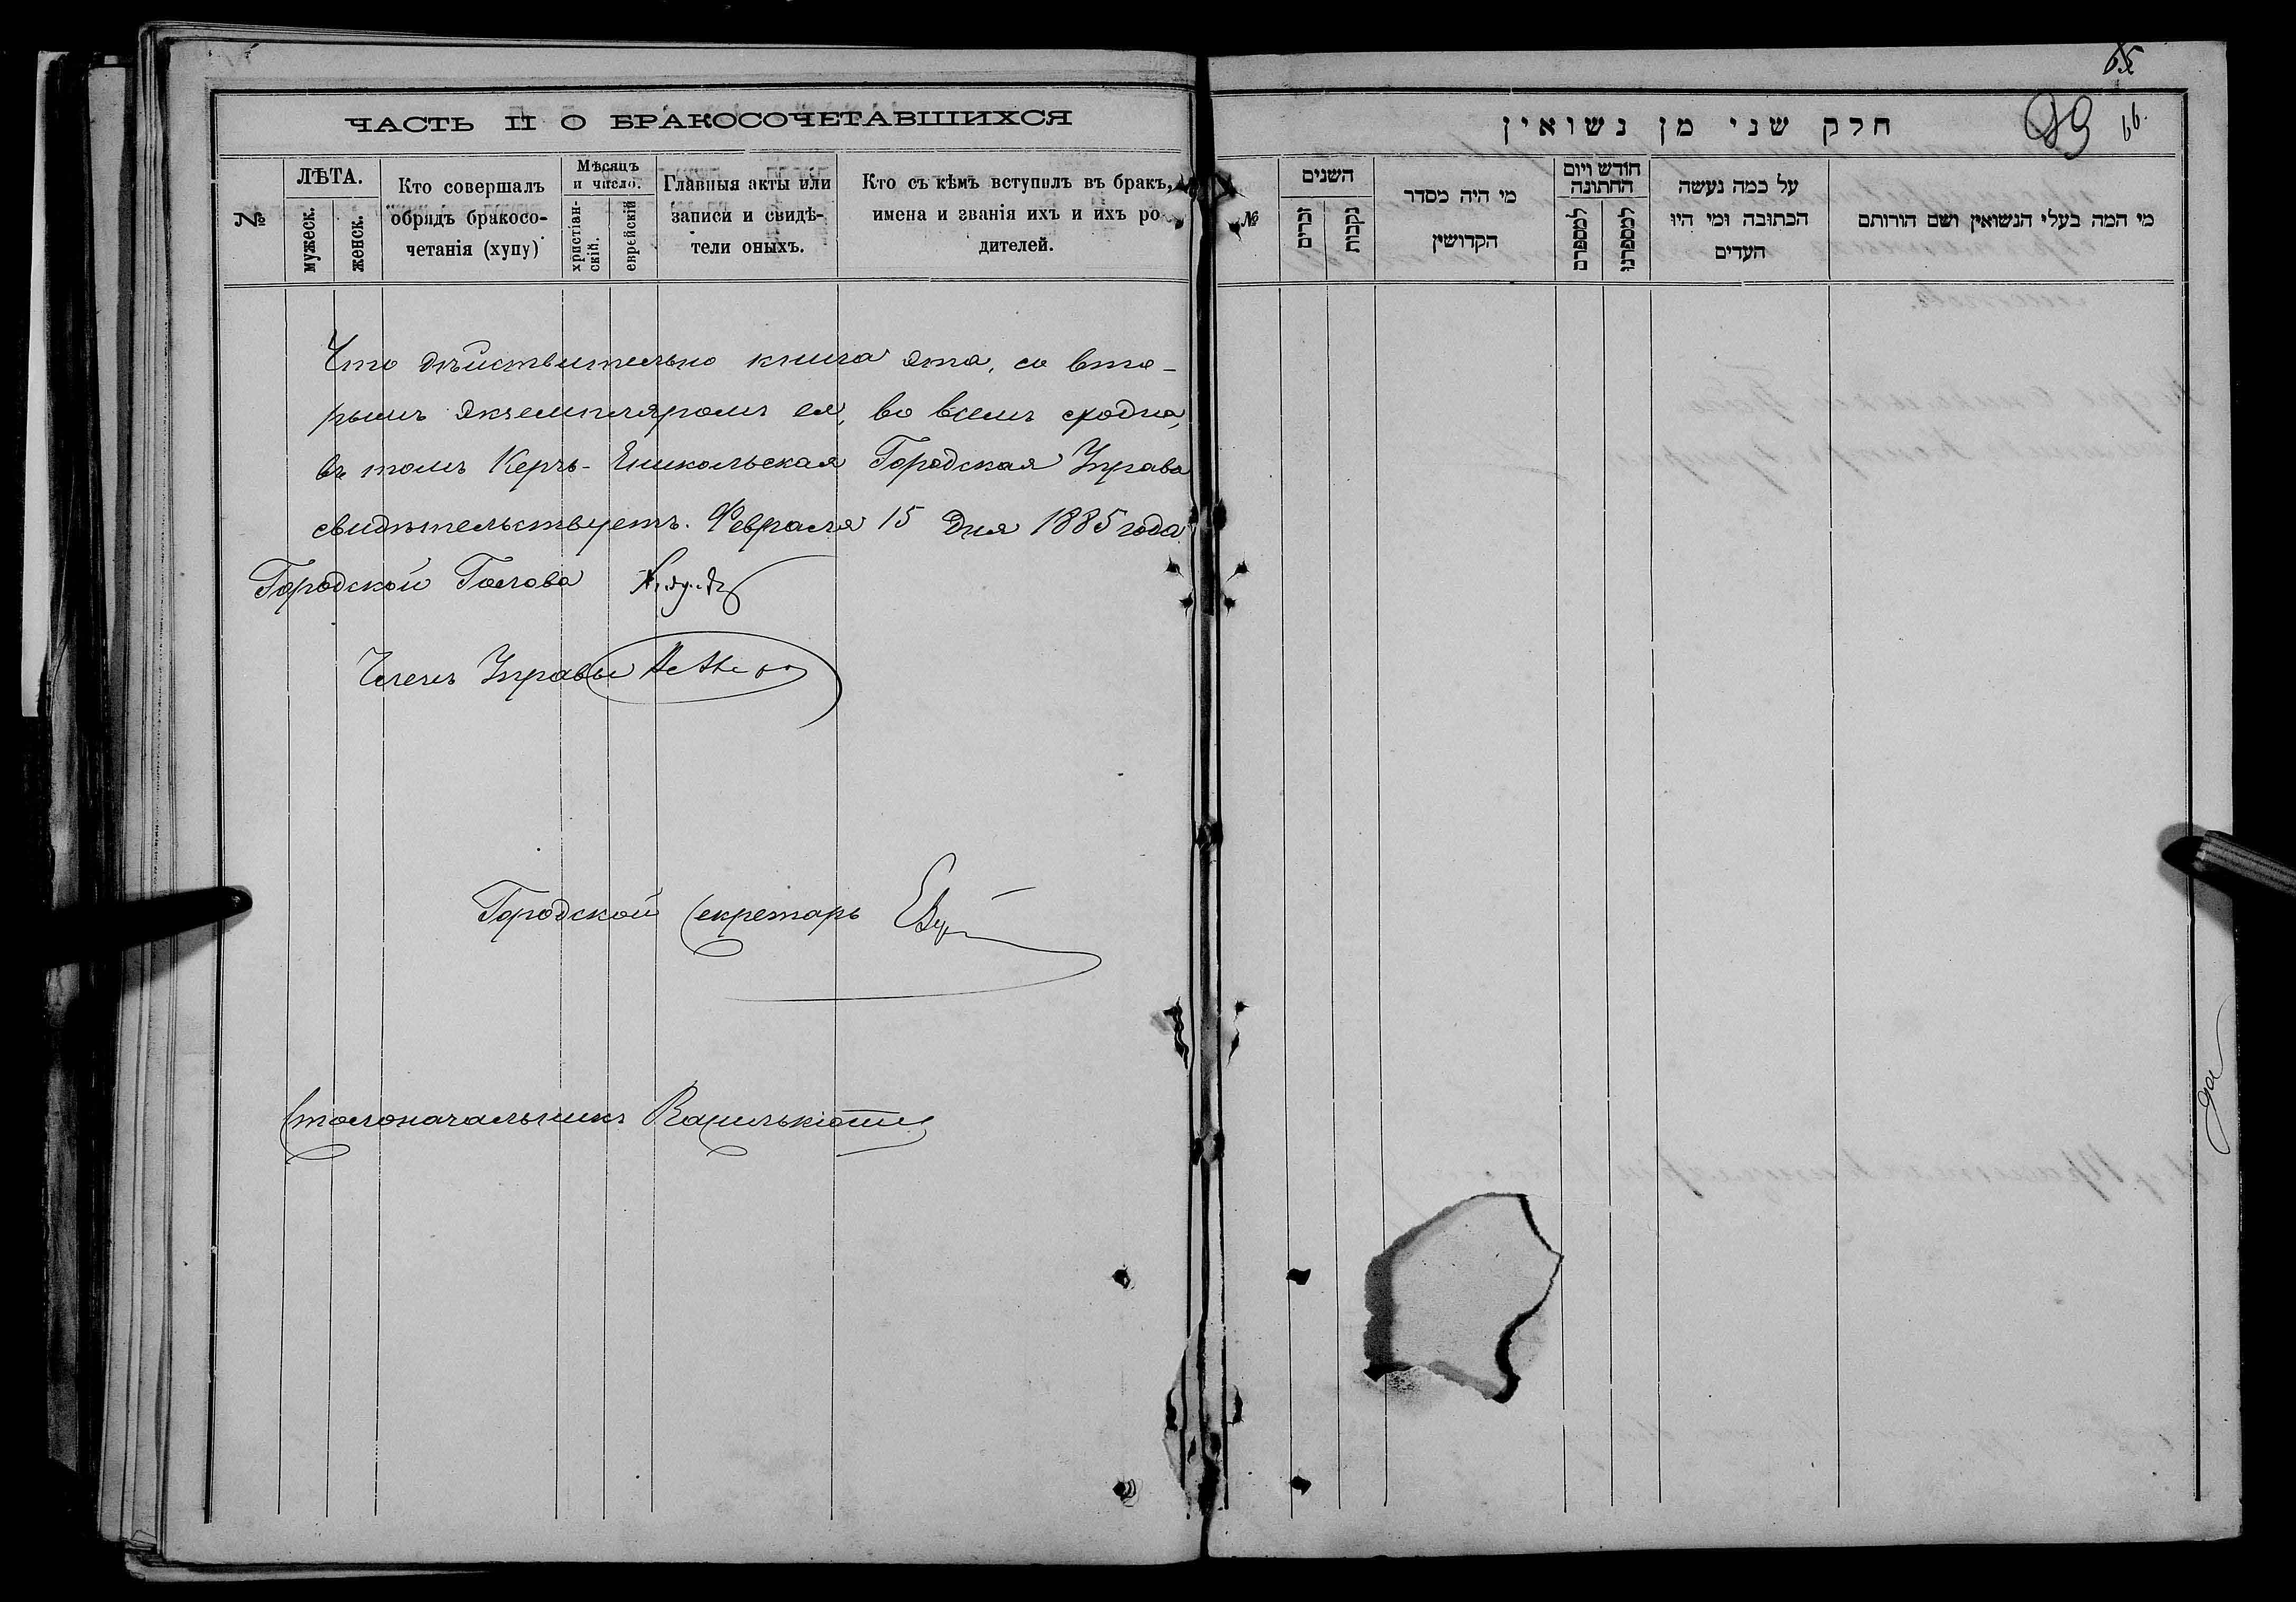 ЧАСТЬ II О БРАКОСОЧЕТАВШИХСЯ
№
ЛѢТА.
мужеск.
женск.
Кто совершалъ
обрядъ бракосо-
четанія (хупу)
Мѣсяцъ
и число.
христіан-
скій.
еврейскій
Главныя акты или
записи и свидѣ-
тели оныхъ.
Кто съ кѣмъ вступилъ въ бракъ,
имена и званія ихъ и ихъ ро
дителей.
Что дѣйствительно книга эта, со вто-
рымъ экземпляромъ ея, во всемъ сходна,
въ томъ Керчь-Еникольская Городская Управа
свидѣтельствуетъ. Февраля 15 дня 1885 года
Городской Голова
Членъ Управы
Городской Секретарь
Столоначальникъ
65
66.
חלק שני מן נשואין
№
השנים
זכרים
נקבות
מי היה מסדר
הקדושין
חודש ויום
החתונה
למספרם
למספרנו
על כמה נעשה
הכתובה ומי היו
העדים
מי המה בעלי הנשואין ושם הורותם